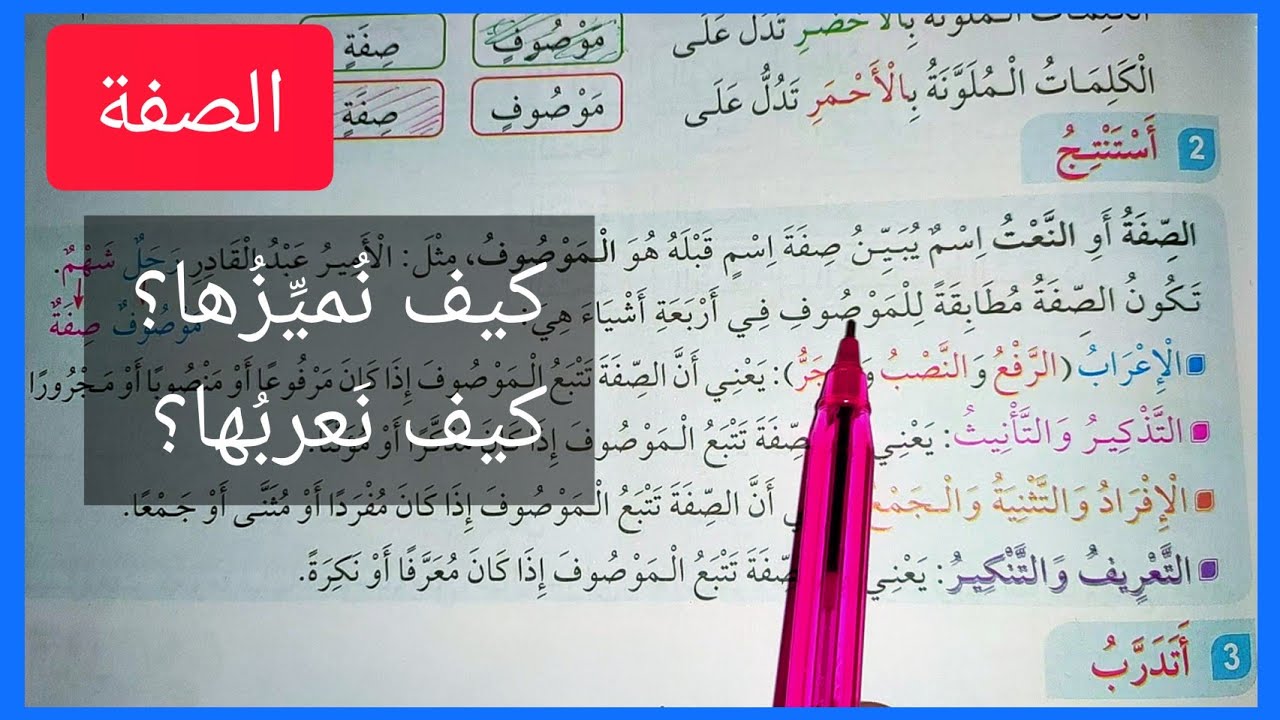 الصفة
كيف نُميِّزُها؟
كيف نَعربُها؟
الْكَلِمَاتُ الْمُلَوَّنَةُ بِالْأَخْضَرِ تَدُلُّ عَلَى مَوْصُوفٍ صِفَةٍ
الْكَلِمَاتُ الْمُلَوَّنَةُ بِالْأَحْمَرِ تَدُلُّ عَلَى مَوْصُوفٍ صِفَةٍ
2 أَسْتَنْتِجُ
الصِّفَةُ أَوِ النَّعْتُ اِسْمٌ يُبَيِّنُ صِفَةَ اِسْمٍ قَبْلَهُ هُوَ الْمَوْصُوفُ، مِثْلَ: الْأَمِيرُ عَبْدُ الْقَادِرِ رَجُلٌ شَهْمٌ.
مَوْصُوفٌ صِفَةٌ
تَكُونُ الصِّفَةُ مُطَابِقَةً لِلْمَوْصُوفِ فِي أَرْبَعَةِ أَشْيَاءَ هِيَ:
الْإِعْرَابُ (الرَّفْعُ وَالنَّصْبُ وَالْجَرُّ): يَعْنِي أَنَّ الصِّفَةَ تَتْبَعُ الْمَوْصُوفَ إِذَا كَانَ مَرْفُوعًا أَوْ مَنْصُوبًا أَوْ مَجْرُورًا
التَّذْكِيرُ وَالتَّأْنِيثُ: يَعْنِي الصِّفَةَ تَتْبَعُ الْمَوْصُوفَ إِذَا كَانَ مُذَكَّرًا أَوْ مُؤَنَّثًا.
الْإِفْرَادُ وَالتَّثْنِيَةُ وَالْجَمْعُ أَنَّ الصِّفَةَ تَتْبَعُ الْمَوْصُوفَ إِذَا كَانَ مُفْرَدًا أَوْ مُثَنَّى أَوْ جَمْعًا.
التَّعْرِيفُ وَالتَّنْكِيرُ: يَعْنِي الصِّفَةَ تَتْبَعُ الْمَوْصُوفَ إِذَا كَانَ مُعَرَّفًا أَوْ نَكِرَةً.
3 أَتَدَرَّبُ